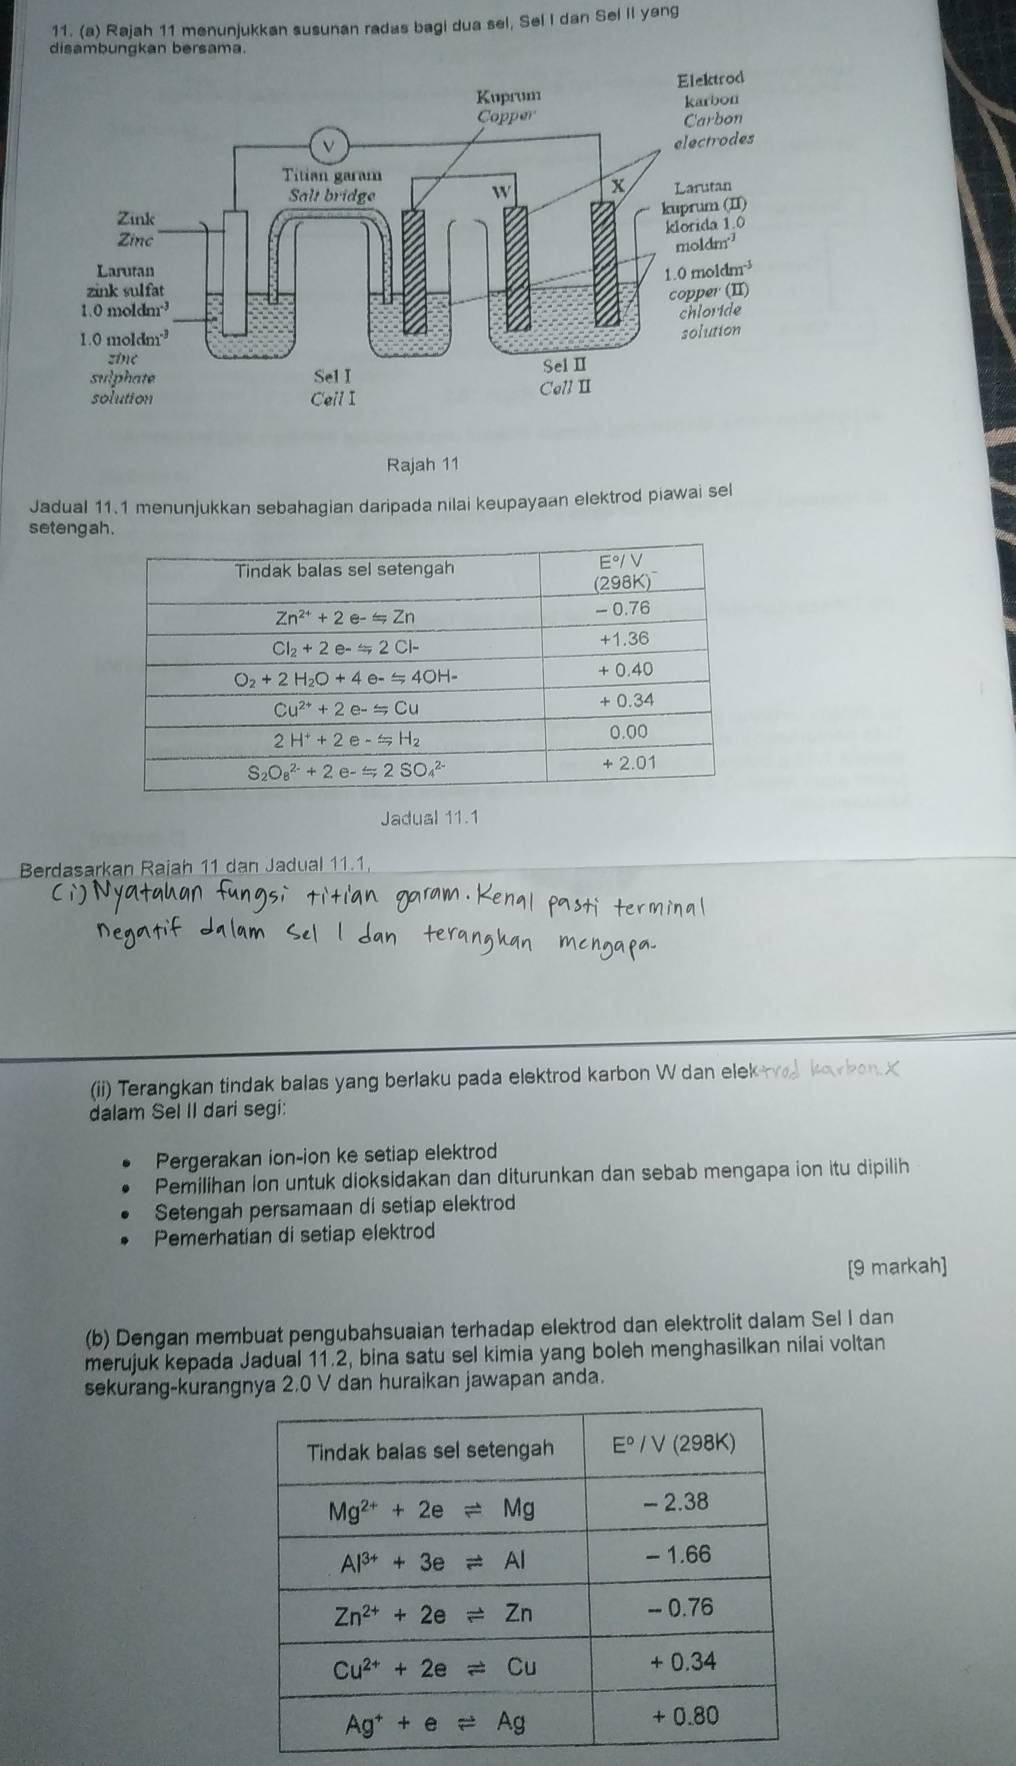 11. (a) Rajah 11 menunjukkan susunan radas bagi dua sel, Sel I dan Sel II yang
disambungkan bersama.
Kuprum
Copper
Elektrod
karbon
Carbon
electrodes
V
Titian garam
Salt bridge
W
X
Larutan
kuprum (II)
klorida 1.0
moldm⁻³
1.0 moldm⁻³
copper (II)
chloride
solution
Zink
Zinc
Larutan
zink sulfat
1.0 moldm⁻³
1.0 moldm⁻³
zinc
sulphate
solution
Sel I
Cell I
Sel II
Cell II
Rajah 11
Jadual 11.1 menunjukkan sebahagian daripada nilai keupayaan elektrod piawai sel
setengah.
Tindak balas sel setengah E°/ V
(298K)
Zn²⁺ + 2 e- ⇋ Zn - 0.76
Cl₂ + 2 e- ⇋ 2 Cl- +1.36
O₂ + 2 H₂O + 4 e- ⇋ 4OH- + 0.40
Cu²⁺ + 2 e- ⇋ Cu + 0.34
2 H⁺ + 2 e - ⇋ H₂ 0.00
S₂O₈²⁻ + 2 e- ⇋ 2 SO₄²⁻ + 2.01
Jadual 11.1
Berdasarkan Rajah 11 dan Jadual 11.1,
(i) Nyatakan fungsi titian garam. Kenal pasti terminal
negatif dalam sel I dan terangkan mengapa.
(ii) Terangkan tindak balas yang berlaku pada elektrod karbon W dan elektrod karbon X
dalam Sel II dari segi:
• Pergerakan ion-ion ke setiap elektrod
• Pemilihan ion untuk dioksidakan dan diturunkan dan sebab mengapa ion itu dipilih
• Setengah persamaan di setiap elektrod
• Pemerhatian di setiap elektrod
[9 markah]
(b) Dengan membuat pengubahsuaian terhadap elektrod dan elektrolit dalam Sel I dan
merujuk kepada Jadual 11.2, bina satu sel kimia yang boleh menghasilkan nilai voltan
sekurang-kurangnya 2.0 V dan huraikan jawapan anda.
Tindak balas sel setengah E° / V (298K)
Mg²⁺ + 2e ⇌ Mg - 2.38
Al³⁺ + 3e ⇌ Al - 1.66
Zn²⁺ + 2e ⇌ Zn - 0.76
Cu²⁺ + 2e ⇌ Cu + 0.34
Ag⁺ + e ⇌ Ag + 0.80